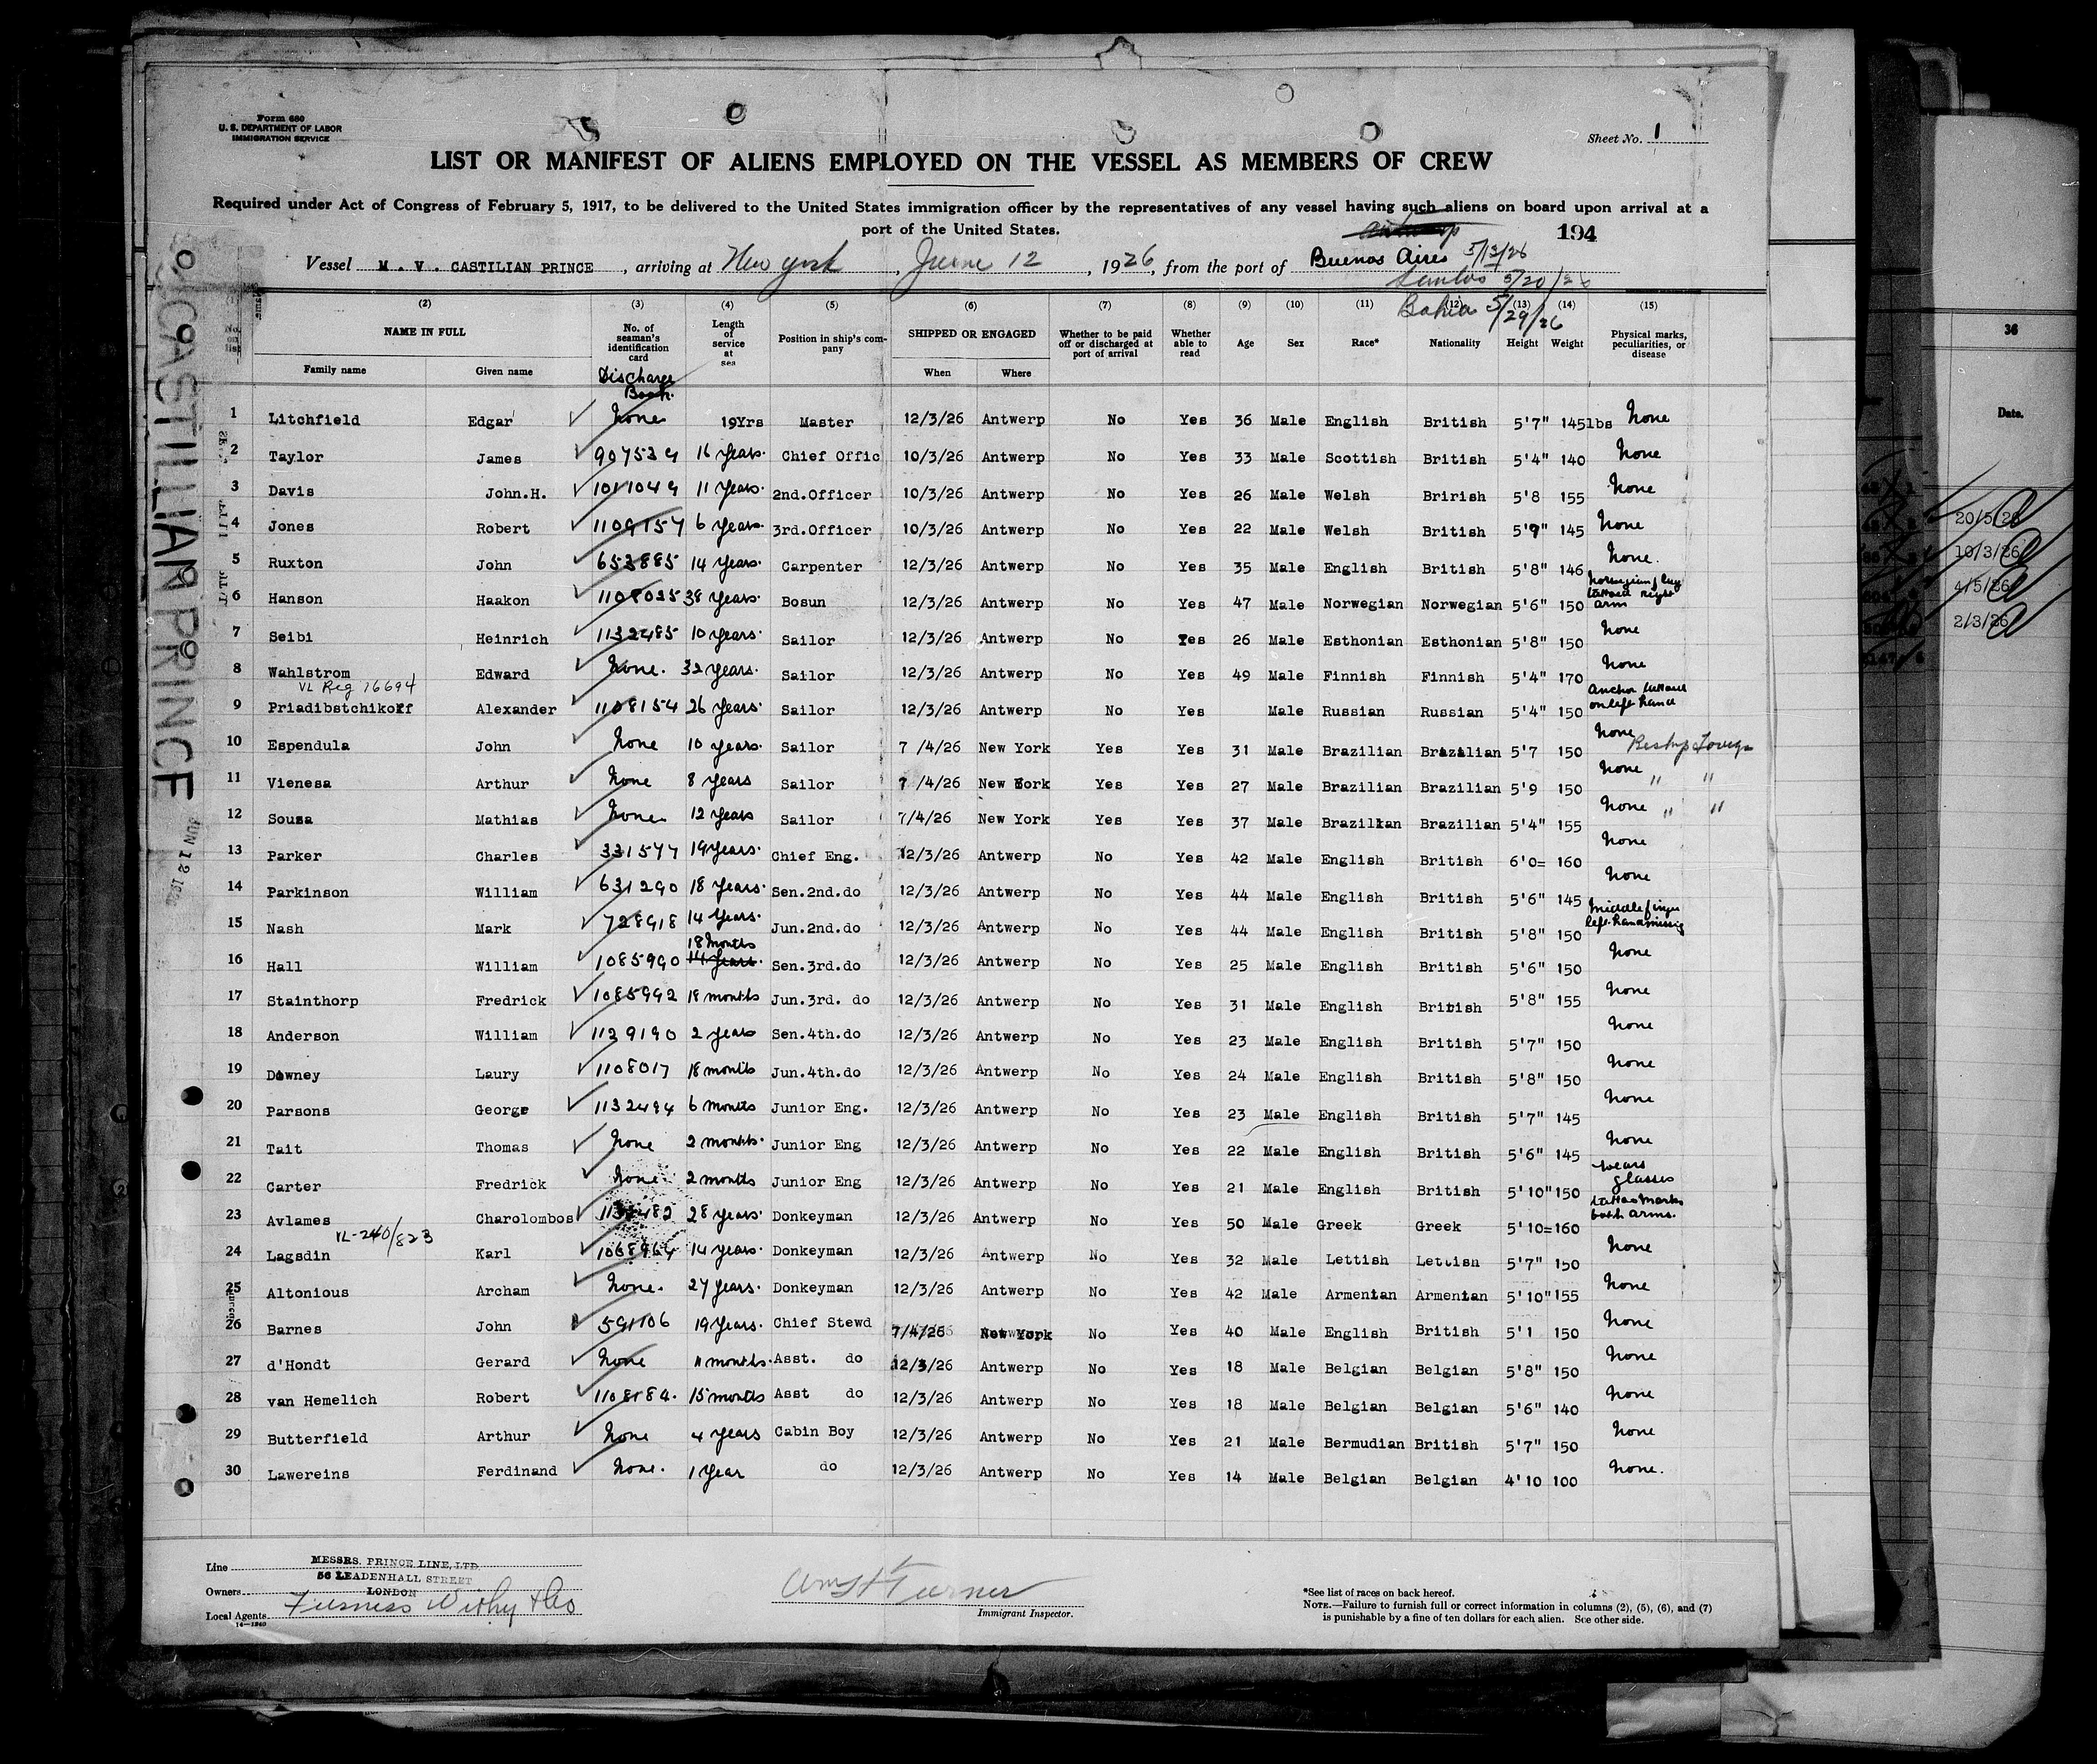 Form 680
U. S. DEPARTMENT OF LABOR
IMMIGRATION SERVICE
Sheet No. 1
LIST OR MANIFEST OF ALIENS EMPLOYED ON THE VESSEL AS MEMBERS OF CREW
Required under Act of Congress of February 5, 1917, to be delivered to the United States immigration officer by the representatives of any vessel having such aliens on board upon arrival at a
port of the United States.
Antwerp 194
Vessel M. V. CASTILIAN PRINCE, arriving at New York, June 12, 1926, from the port of Buenos Aires 5/13/26
Santos 5/20/26
Bahia 5/29/26
CASTILIAN PRINCE
JUN 12
(1) (2) (3) (4) (5) (6) (7) (8) (9) (10) (11) (12) (13) (14) (15)
No. on list NAME IN FULL No. of seaman's identification card Length of service at sea Position in ship's company SHIPPED OR ENGAGED Whether to be paid off or discharged at port of arrival Whether able to read Age Sex Race* Nationality Height Weight Physical marks, peculiarities, or disease
Family name Given name When Where
Discharge Book
1 Litchfield Edgar None 19Yrs Master 12/3/26 Antwerp No Yes 36 Male English British 5'7" 145lbs None
2 Taylor James 907534 16 Years. Chief Offic 10/3/26 Antwerp No Yes 33 Male Scottish British 5'4" 140 None
3 Davis John.H. 1011049 11 Years. 2nd.Officer 10/3/26 Antwerp No Yes 26 Male Welsh Brirish 5'8 155 None
4 Jones Robert 1109157 6 Years. 3rd.Officer 10/3/26 Antwerp No Yes 22 Male Welsh British 5'9" 145 None
5 Ruxton John 653885 14 Years. Carpenter 12/3/26 Antwerp No Yes 35 Male English British 5'8" 146 None.
6 Hanson Haakon 1108035 38 Years. Bosun 12/3/26 Antwerp No Yes 47 Male Norwegian Norwegian 5'6" 150 Norwegian flag tattooed right arm
7 Seibi Heinrich 1132485 10 Years. Sailor 12/3/26 Antwerp No Yes 26 Male Esthonian Esthonian 5'8" 150 None
8 Wahlstrom Edward None. 32 Years. Sailor 12/3/26 Antwerp No Yes 49 Male Finnish Finnish 5'4" 170 None
VL Reg 16694
9 Priadibstchikoff Alexander 1108154 26 Years. Sailor 12/3/26 Antwerp No Yes Male Russian Russian 5'4" 150 Anchor tattooed on left hand
10 Espendula John None 10 Years. Sailor 7 /4/26 New York Yes Yes 31 Male Brazilian Brazilian 5'7 150 None
11 Vienesa Arthur None 8 Years Sailor 7 /4/26 New York Yes Yes 27 Male Brazilian Brazilian 5'9 150 None " "
12 Sousa Mathias None 12 Years Sailor 7/4/26 New York Yes Yes 37 Male Brazilian Brazilian 5'4" 155 None " "
13 Parker Charles 331577 19 Years. Chief Eng. 12/3/26 Antwerp No Yes 42 Male English British 6'0= 160 None
14 Parkinson William 631290 18 Years. Sen.2nd.do 12/3/26 Antwerp No Yes 44 Male English British 5'6" 145 None
15 Nash Mark 728918 14 Years. Jun.2nd.do 12/3/26 Antwerp No Yes 44 Male English British 5'8" 150 Middle finger left hand missing
16 Hall William 1085990 18 Months 14 Years. Sen.3rd.do 12/3/26 Antwerp No Yes 25 Male English British 5'6" 150 None
17 Stainthorp Fredrick 1085992 18 months Jun.3rd. do 12/3/26 Antwerp No Yes 31 Male English British 5'8" 155 None
18 Anderson William 1129190 2 years Sen.4th.do 12/3/26 Antwerp No Yes 23 Male English British 5'7" 150 None
19 Downey Laury 1108017 18 months Jun.4th.do 12/3/26 Antwerp No Yes 24 Male English British 5'8" 150 None
20 Parsons George 1132494 6 months Junior Eng. 12/3/26 Antwerp No Yes 23 Male English British 5'7" 145 None
21 Tait Thomas None 2 months. Junior Eng 12/3/26 Antwerp No Yes 22 Male English British 5'6" 145 None
22 Carter Fredrick None 2 months Junior Eng 12/3/26 Antwerp No Yes 21 Male English British 5'10" 150 Wears glasses
23 Avlames Charolombos 1132482 28 Years. Donkeyman 12/3/26 Antwerp No Yes 50 Male Greek Greek 5'10= 160 tattoo marks both arms.
VL-240/823
24 Lagsdin Karl 1068964 14 Years. Donkeyman 12/3/26 Antwerp No Yes 32 Male Lettish Lettish 5'7" 150 None
25 Altonious Archam None. 27 Years. Donkeyman 12/3/26 Antwerp No Yes 42 Male Armenian Armenian 5'10" 155 None
26 Barnes John 591106 19 Years. Chief Stewd 7/4/26 New York No Yes 40 Male English British 5'1 150 None
27 d'Hondt Gerard None 11 months. Asst. do 12/3/26 Antwerp No Yes 18 Male Belgian Belgian 5'8" 150 None
28 van Hemelich Robert 1108184. 15 months Asst do 12/3/26 Antwerp No Yes 18 Male Belgian Belgian 5'6" 140 None
29 Butterfield Arthur None 4 years Cabin Boy 12/3/26 Antwerp No Yes 21 Male Bermudian British 5'7" 150 None
30 Lawereins Ferdinand None. 1 Year do 12/3/26 Antwerp No Yes 14 Male Belgian Belgian 4'10 100 None.
Line MESSRS. PRINCE LINE, LTD.
56 LEADENHALL STREET
Owners LONDON
Local Agents Furness Withy & Co
14—1240
Turner
Immigrant Inspector.
*See list of races on back hereof.
NOTE.—Failure to furnish full or correct information in columns (2), (5), (6), and (7)
is punishable by a fine of ten dollars for each alien. See other side.
36
Date.
20/5/26
10/3/26
4/5/26
2/3/26